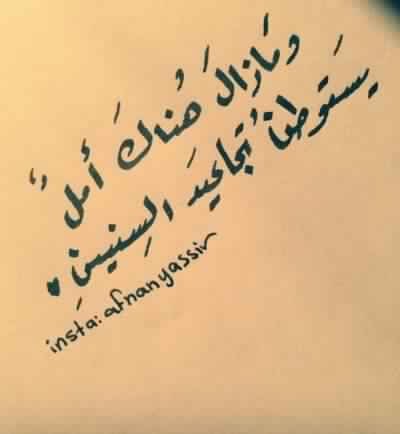 وَمَازالَ هُناكَ أملٌ
يَستوطنُ تجاعيدَ السِنينِ.
insta: afnanyassiv